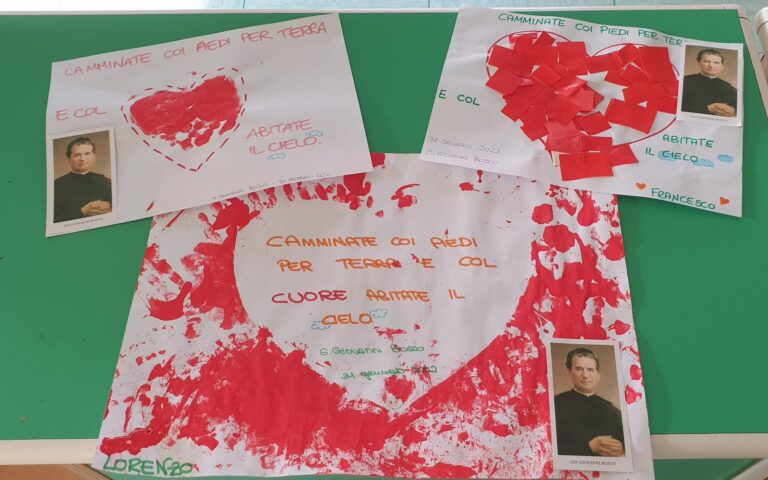 CAMMINATE COI PIEDI PER TERRA
E COL
ABITATE
IL CIELO.
S. GIOVANNI BOSCO 31 GENNAIO 2022
SAN GIOVANNI BOSCO
CAMMINATE COI PIEDI PER TERRA
E COL
ABITATE
IL CIELO
31 GENNAIO 2022
S. GIOVANNI BOSCO
FRANCESCO
SAN GIOVANNI BOSCO
CAMMINATE COI PIEDI
PER TERRA E COL
CUORE ABITATE IL
CIELO
S. GIOVANNI BOSCO
31 gennaio 2022
LORENZO
SAN GIOVANNI BOSCO